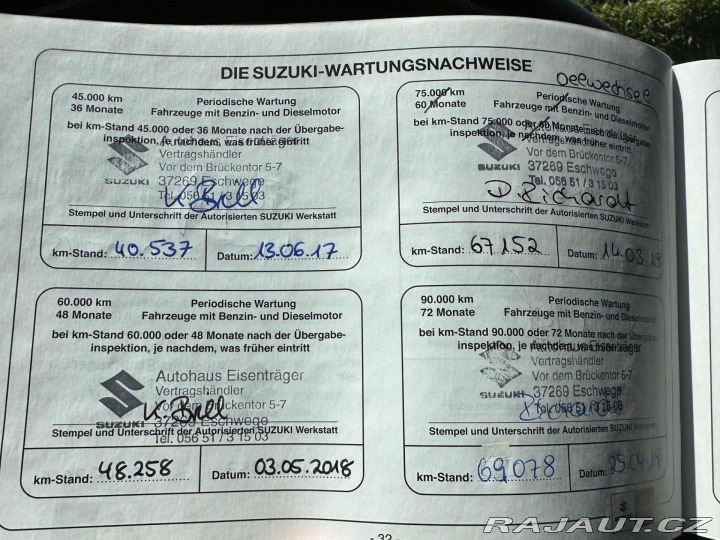 DIE SUZUKI-WARTUNGSNACHWEISE
45.000 km
36 Monate
Periodische Wartung
Fahrzeuge mit Benzin- und Dieselmotor
bei km-Stand 45.000 oder 36 Monate nach der Übergabe-
inspektion, je nachdem, was früher eintritt
Vertragshändler
Vor dem Brückentor 5-7
37269 Eschwege
Tel. 056 51 / 3 15 03
SUZUKI
K. Brill
Stempel und Unterschrift der Autorisierten SUZUKI Werkstatt
km-Stand: 40.537
Datum: 13.06.17
60.000 km
48 Monate
Periodische Wartung
Fahrzeuge mit Benzin- und Dieselmotor
bei km-Stand 60.000 oder 48 Monate nach der Übergabe-
inspektion, je nachdem, was früher eintritt
Autohaus Eisenträger
Vertragshändler
Vor dem Brückentor 5-7
37269 Eschwege
Tel. 056 51 / 3 15 03
SUZUKI
K. Brill
Stempel und Unterschrift der Autorisierten SUZUKI Werkstatt
km-Stand: 48.258
Datum: 03.05.2018
Oelwechsel
75.000 km
60 Monate
Periodische Wartung
Fahrzeuge mit Benzin- und Dieselmotor
bei km-Stand 75.000 oder 60 Monate nach der Übergabe-
inspektion, je nachdem, was früher eintritt
Vertragshändler
Vor dem Brückentor 5-7
37269 Eschwege
Tel. 056 51 / 3 15 03
SUZUKI
D. Richardt
Stempel und Unterschrift der Autorisierten SUZUKI Werkstatt
km-Stand: 67.152
Datum: 14.03.19
90.000 km
72 Monate
Periodische Wartung
Fahrzeuge mit Benzin- und Dieselmotor
bei km-Stand 90.000 oder 72 Monate nach der Übergabe-
inspektion, je nachdem, was früher eintritt
Vertragshändler
Vor dem Brückentor 5-7
37269 Eschwege
SUZUKI
Stempel und Unterschrift der Autorisierten SUZUKI Werkstatt
km-Stand: 69.078
Datum: 25.04.19
- 32 -
RAJAUT.CZ